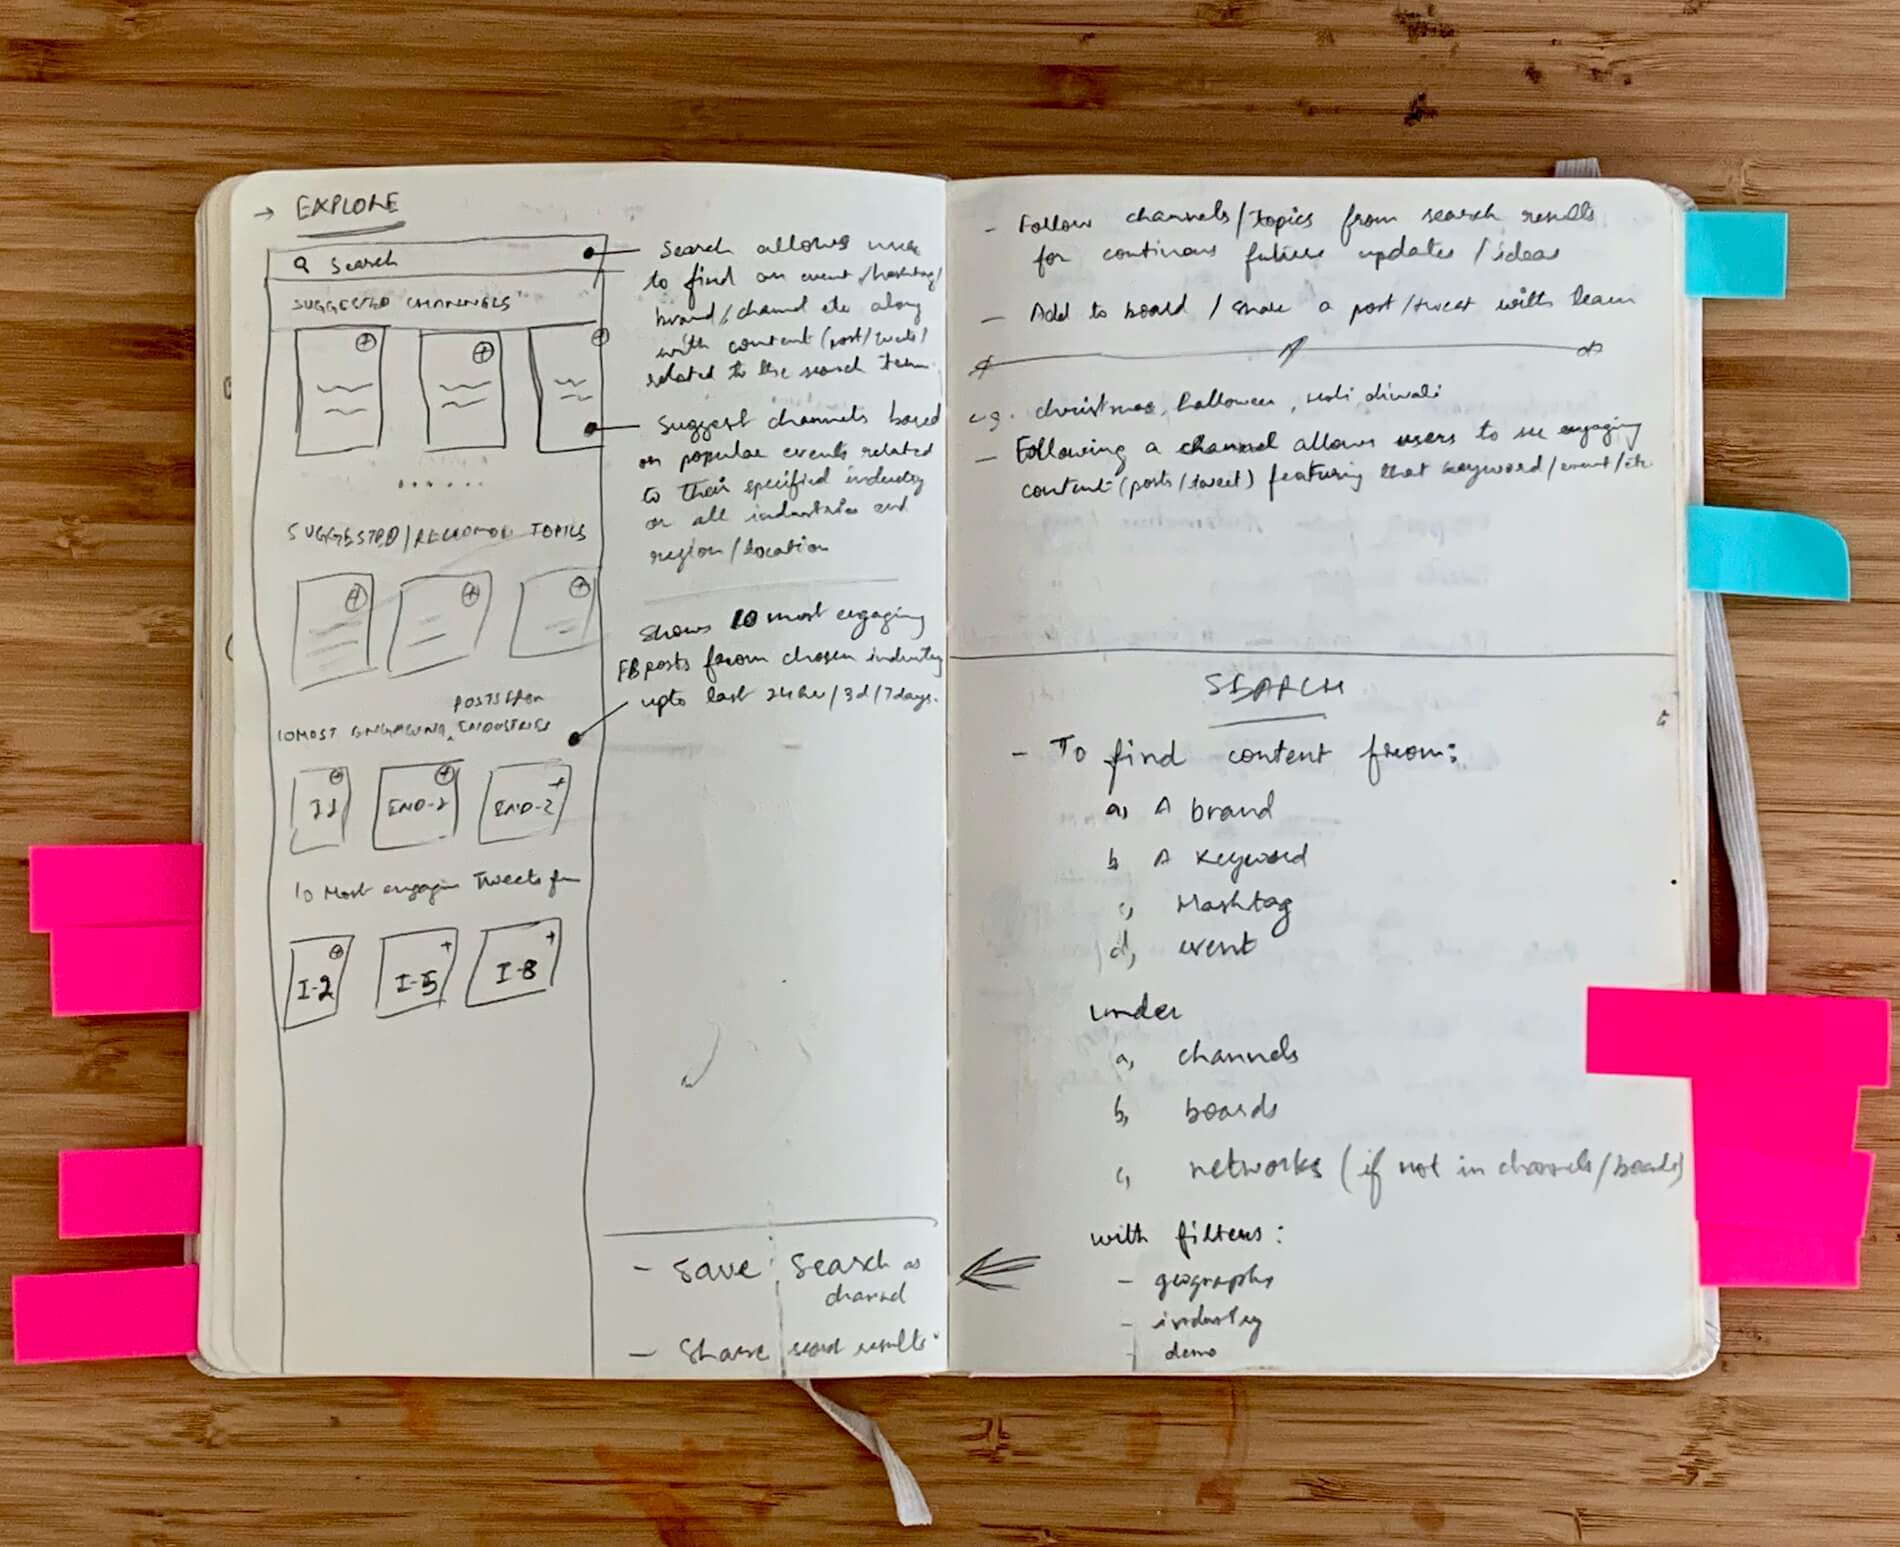 → EXPLORE
Search
SUGGESTED CHANNELS
SUGGESTED/RECOMMD TOPICS
POSTS FROM
10 MOST ENGAGING INDUSTRIES
I1
IND-2
IND-2
10 Most engagin Tweets fm
I-2
I-5
I-8
Search allows user
to find an event/hashtag/
brand/channel etc along
with content (post/tweets)
related to the search term
Suggest channels based
on popular events related
to their specified industry
or all industries and
region/location
Shows 10 most engaging
FB posts from chosen industry
upto last 24hr/3d/7days.
- Save Search as
channel
- Share search results
- Follow channels/topics from search results
for continous future updates/ideas
- Add to board / share a post/tweet with team
e.g. christmas, halloween, diwali
- Following a channel allows users to see engaging
content (posts/tweet) featuring that keyword/event/etc
SEARCH
- To find content from:
a, A brand
b A keyword
c, Hashtag
d, event
under
a, channels
b, boards
c, networks (if not in channels/boards)
with filters:
- geography
- industry
- demo